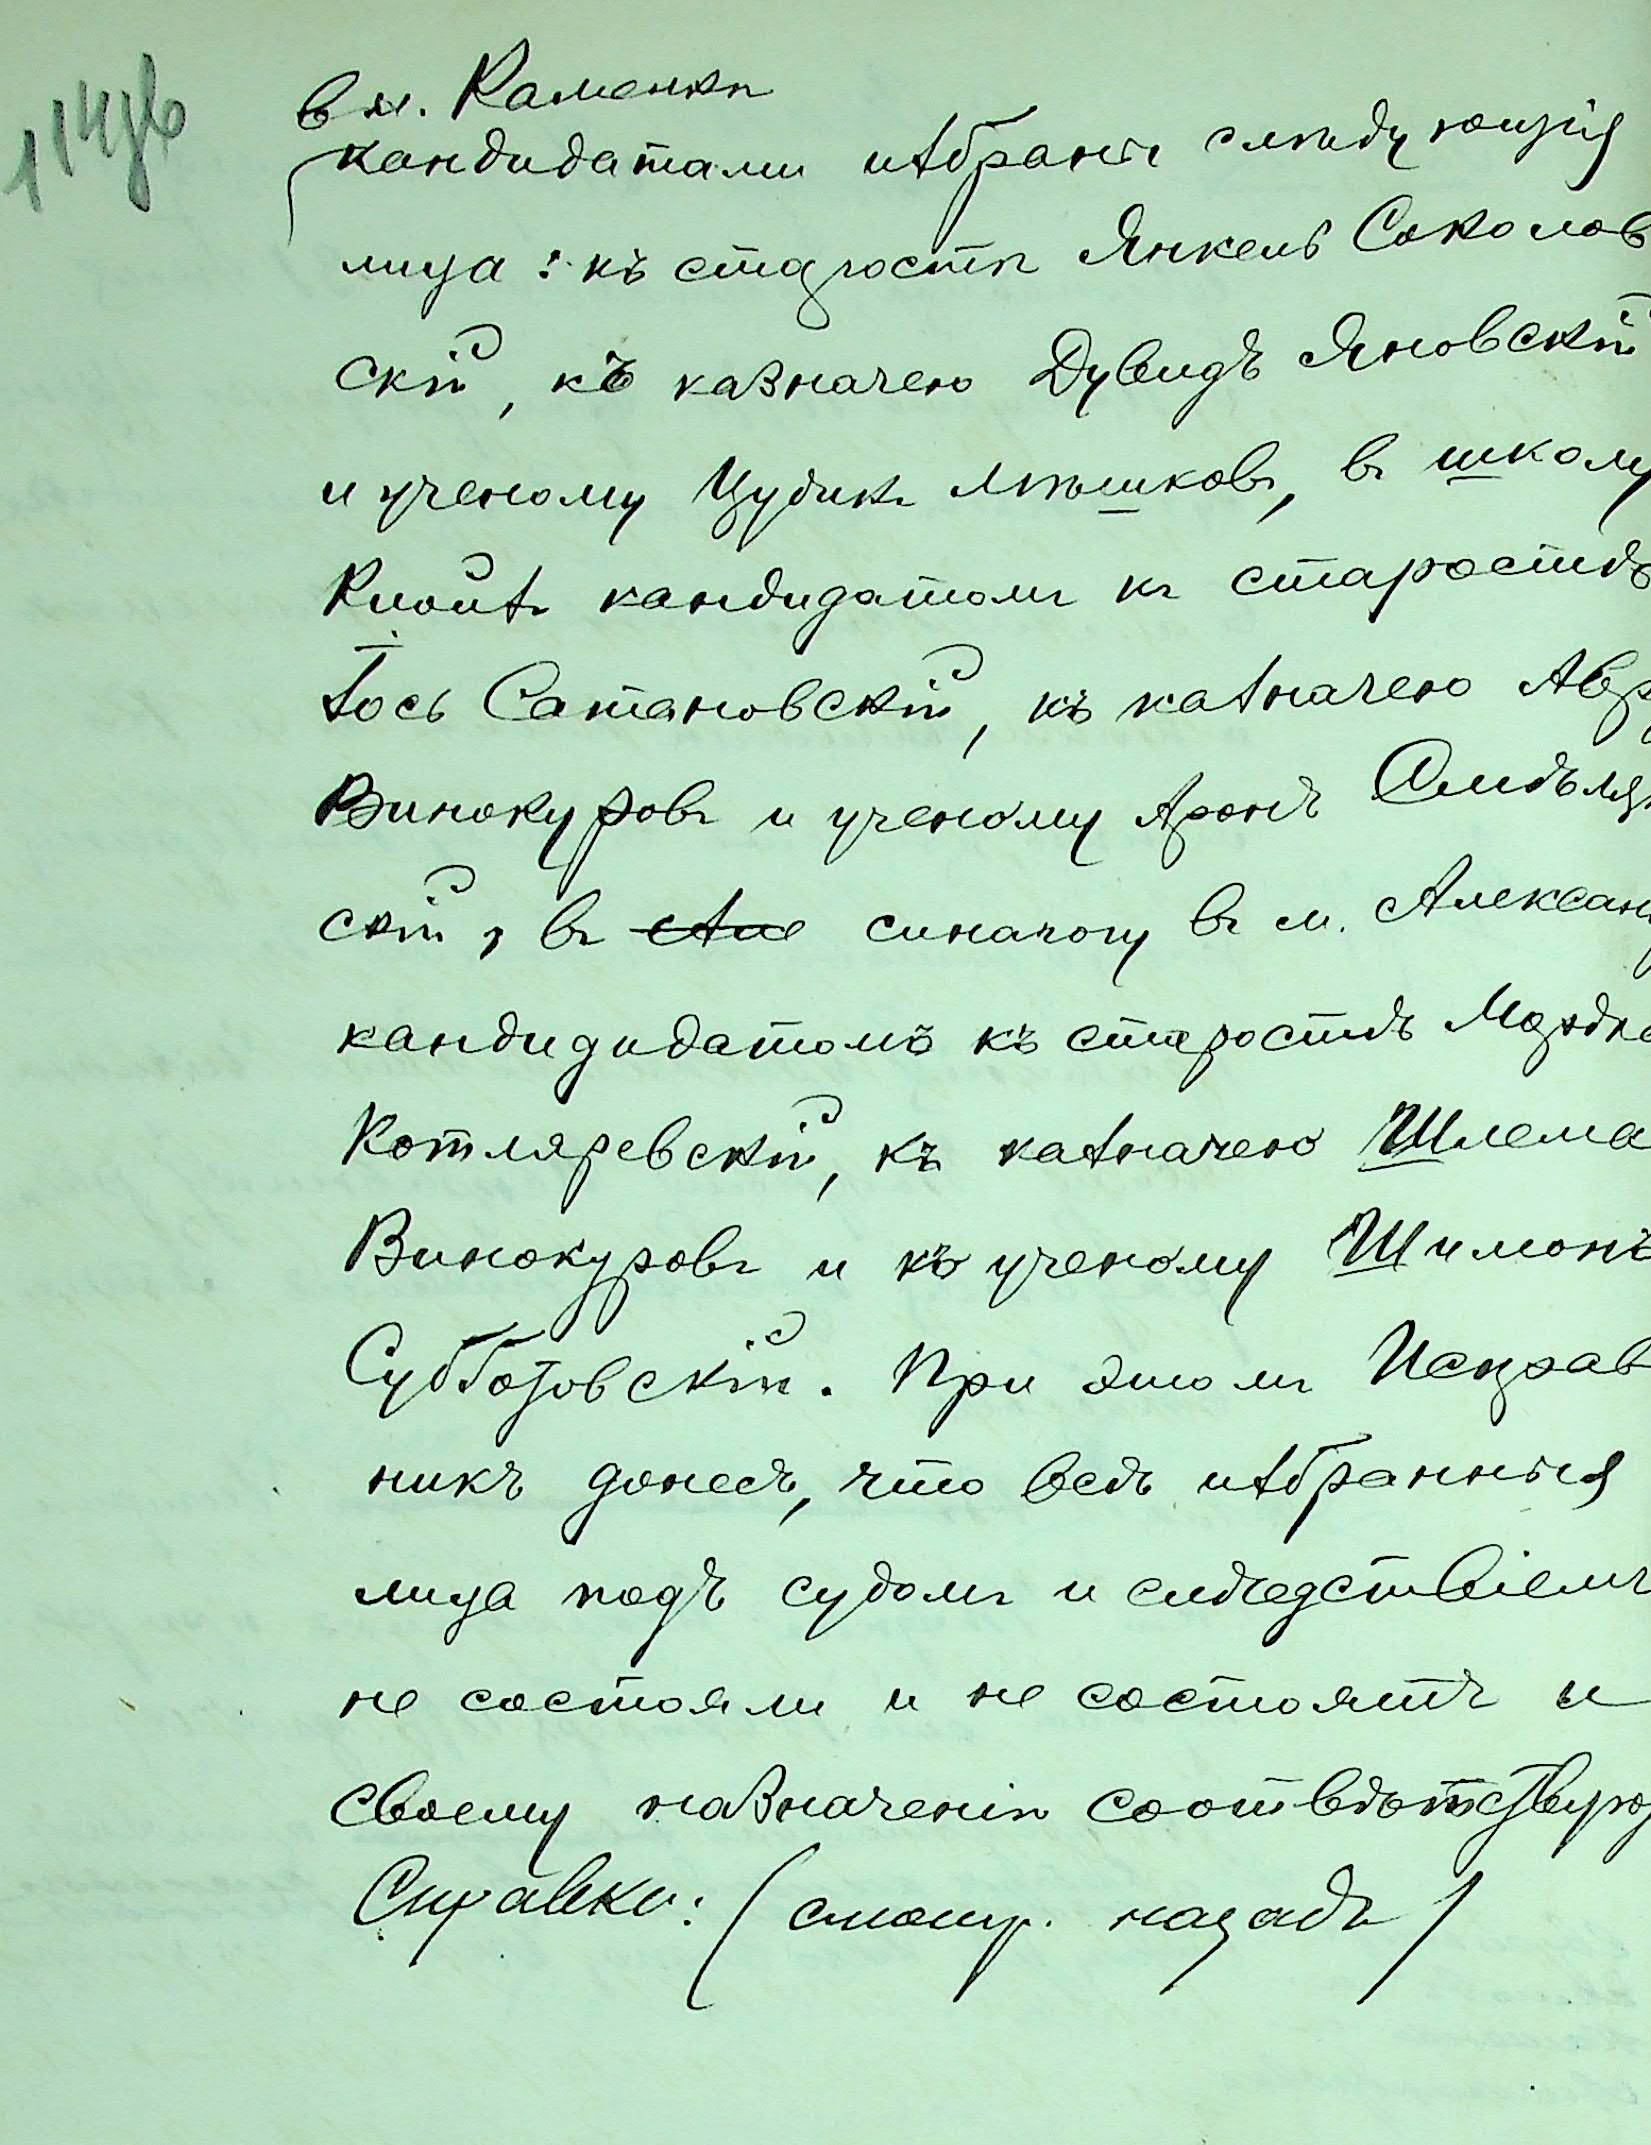 114об
в м. Каменкѣ
кандидатами избраны слѣдующія
лица: къ старостѣ Янкель Соколов
скій, къ казначею Дувидъ Яновскій
и ученому Цудикъ Мѣшковъ, въ школу
кандидатомъ къ старостѣ
Іось Сатановскій, къ казначею Авр
Винокуровъ и ученому Аронъ
скій, въ синагогу въ м. Алексан
кандидидатомъ къ старостѣ Мордко
Котляревскій, къ казначею Шлема
Винокуровъ и къ ученому Шимонъ
Субботовскій. При этомъ Исправ
никъ донесъ, что всѣ избранныя
лица подъ судомъ и слѣдствіемъ
не состояли и не состоятъ и
своему назначенію соотвѣтствую
Справка: (смотр. назадъ)